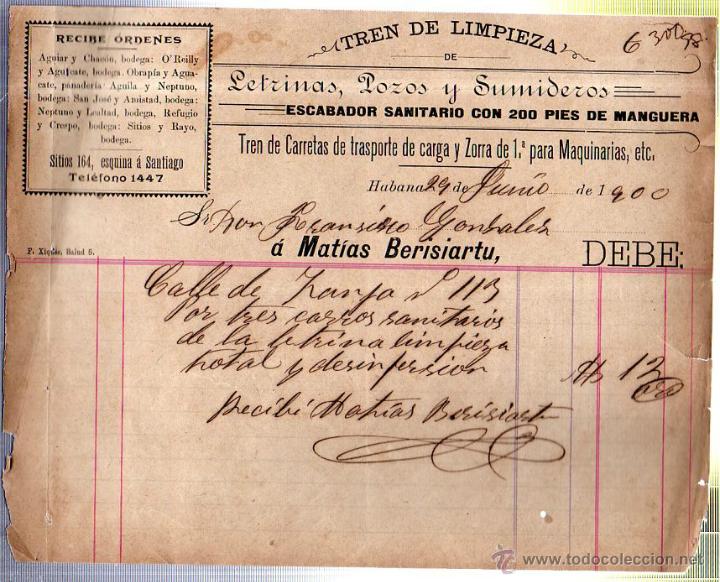 RECIBE ÓRDENES
Aguiar y Chacón, bodega: O'Reilly
y Aguicate, bodega. Obrapía y Agua-
cate, panadería Aguila y Neptuno,
bodega: San José y Amistad, bodega:
Neptuno y Lealtad, bodega, Refugio
y Crespo, bodega: Sitios y Rayo,
bodega.
Sitios 164, esquina á Santiago
Teléfono 1447
TREN DE LIMPIEZA
DE
Letrinas, Pozos y Sumideros
ESCABADOR SANITARIO CON 200 PIES DE MANGUERA
Tren de Carretas de trasporte de carga y Zorra de 1.ª para Maquinarias, etc.
Habana 29 de Junio de 1900
Sr Don Fransisco Gonsales
á Matías Berisiartu, DEBE:
F. Xiqués, Salud 5.
Calle de Zanja Nº 113
por tres carros sanitarios
de la letrina limpieza
total y desinfersion $ 12
oro
Recibí Matías Berisiartu
www.todocoleccion.net